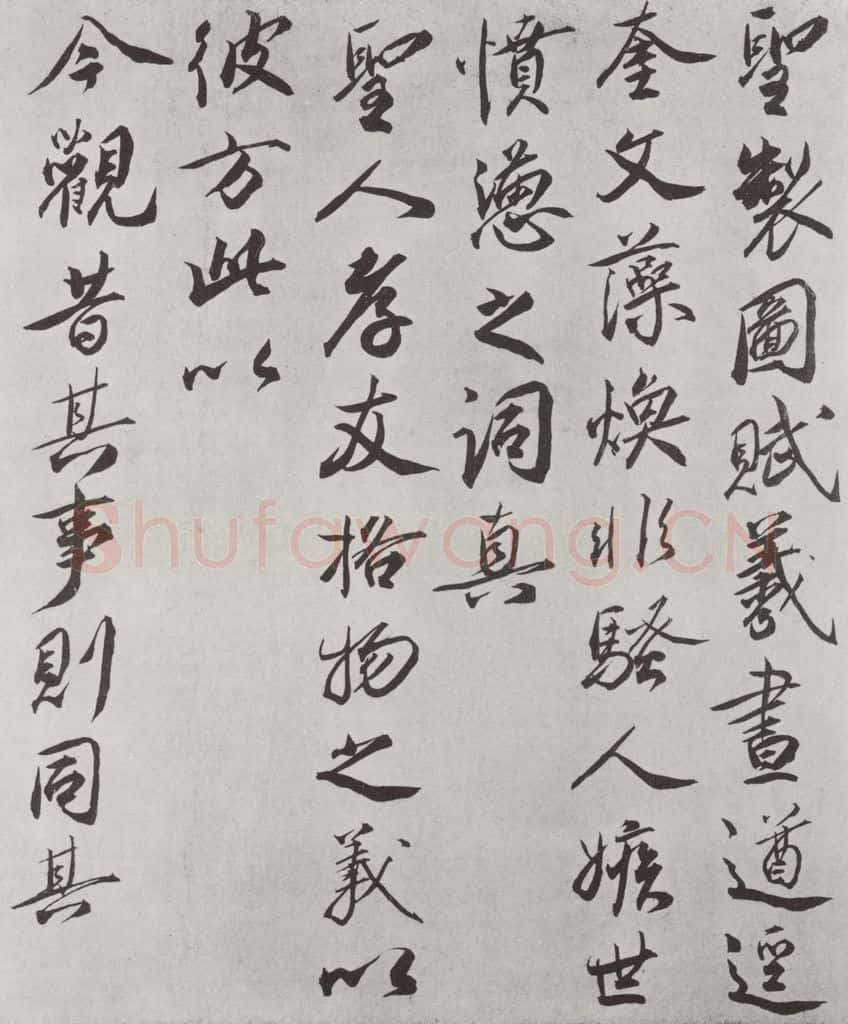 聖製圖賦羲畫遒逕
奎文藻煥非騷人嫉世
憤懣之詞真
聖人孝友格物之義以
彼方此以
今觀昔其事則同其
Shufawang.CN